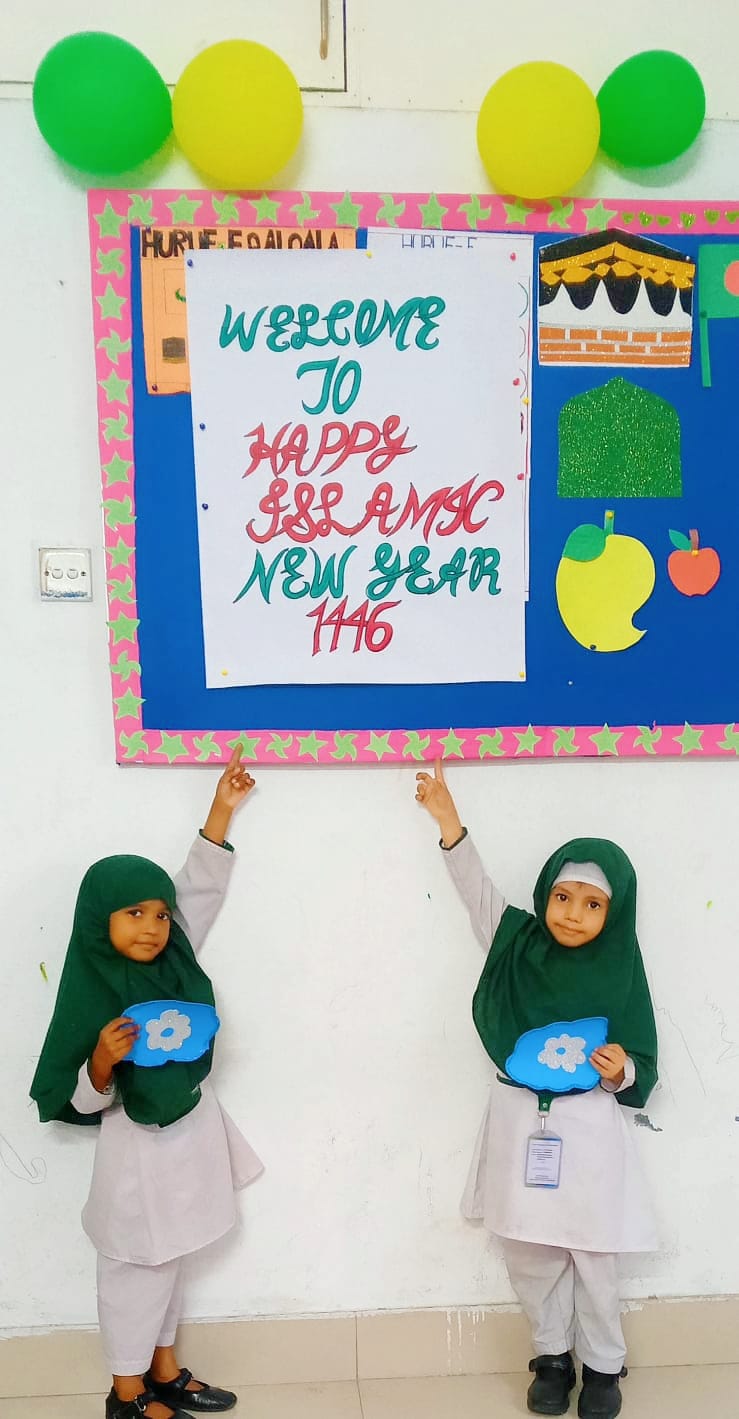 HURUF-E QALQALA
HURUF-E
WELCOME
TO
HAPPY
ISLAMIC
NEW YEAR
1446